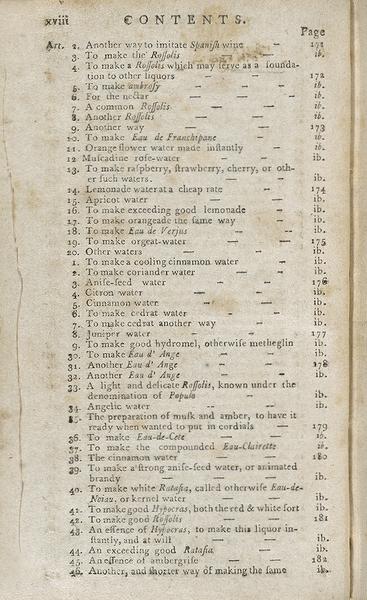 xviii CONTENTS.
Page
Art. 2. Another way to imitate Spanish wine — 171
3. To make the Rossolis — — ib.
4. To make a Rossolis which may serve as a founda-
tion to other liquors — — 172
5. To make ambrosy — — ib.
6. For the nectar — — ib.
7. A common Rossolis — — ib.
8. Another Rossolis — — ib.
9. Another way — — 173
10. To make Eau de Franchipane — ib.
11. Orange flower water made instantly — ib.
12 Muscadine rose-water — ib.
13. To make raspberry, strawberry, cherry, or oth-
er such waters. — — ib.
14. Lemonade water at a cheap rate — 174
15. Apricot water — — ib.
16. To make exceeding good lemonade — ib.
17. To make orangeade the same way — ib.
18. To make Eau de Verjus — -- ib.
19. To make orgeat-water — — 175
20. Other waters — — ib.
1. To make a cooling cinnamon water — ib.
2. To make coriander water — ib.
3. Anise-seed water — — 176
4. Citron water — — ib.
5. Cinnamon water — — ib.
6. To make cedrat water — — ib.
7. To make cedrat another way — ib.
8. Juniper water — — 177
9. To make good hydromel, otherwise metheglin ib.
30. To make Eau d' Ange — — ib.
31. Another Eau d' Ange — — 178
32. Another Eau d' Ange — — ib.
33. A light and delicate Rossolis, known under the
denomination of Populo — — ib.
34. Angelic water — — ib.
35. The preparation of musk and amber, to have it
ready when wanted to put in cordials — 179
36. To make Eau-de-Cete — — ib.
37. To make the compounded Eau-Clairette ib.
38. The cinnamon water — — 180
39. To make a strong anise-seed water, or animated
brandy — — — ib.
40. To make white Ratafia, called otherwise Eau-de-
Noiau, or kernel water — — ib.
41. To make good Hypocras, both the red & white sort ib.
42. To make good Rossolis — — 181
43. An essence of Hypocras, to make this liquor in-
stantly, and at will — — ib.
44. An exceeding good Ratafia — ib.
45. An essence of ambergrise — — 182
46. Another, and shorter way of making the same ib.